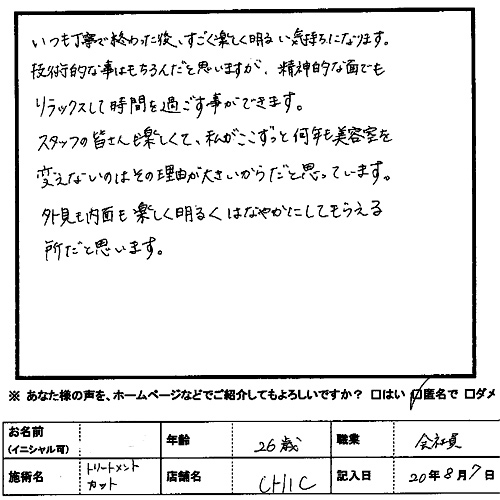 いつも丁寧で終わった後、すごく楽しく明るい気持ちになります。
技術的な事はもちろんだと思いますが、精神的な面でも
リラックスして時間を過ごす事ができます。
スタッフの皆さんも楽しくて、私がここずっと何年も美容室を
変えないのはその理由が大きいからだと思っています。
外見も内面も楽しく明るくはなやかにしてもらえる
所だと思います。
※ あなた様の声を、ホームページなどでご紹介してもよろしいですか？ 口はい 口匿名で 口ダメ
お名前 年齢 26歳 職業 会社員
(イニシャル可)
施術名 トリートメント カット 店舗名 CHIC 記入日 20年8月7日